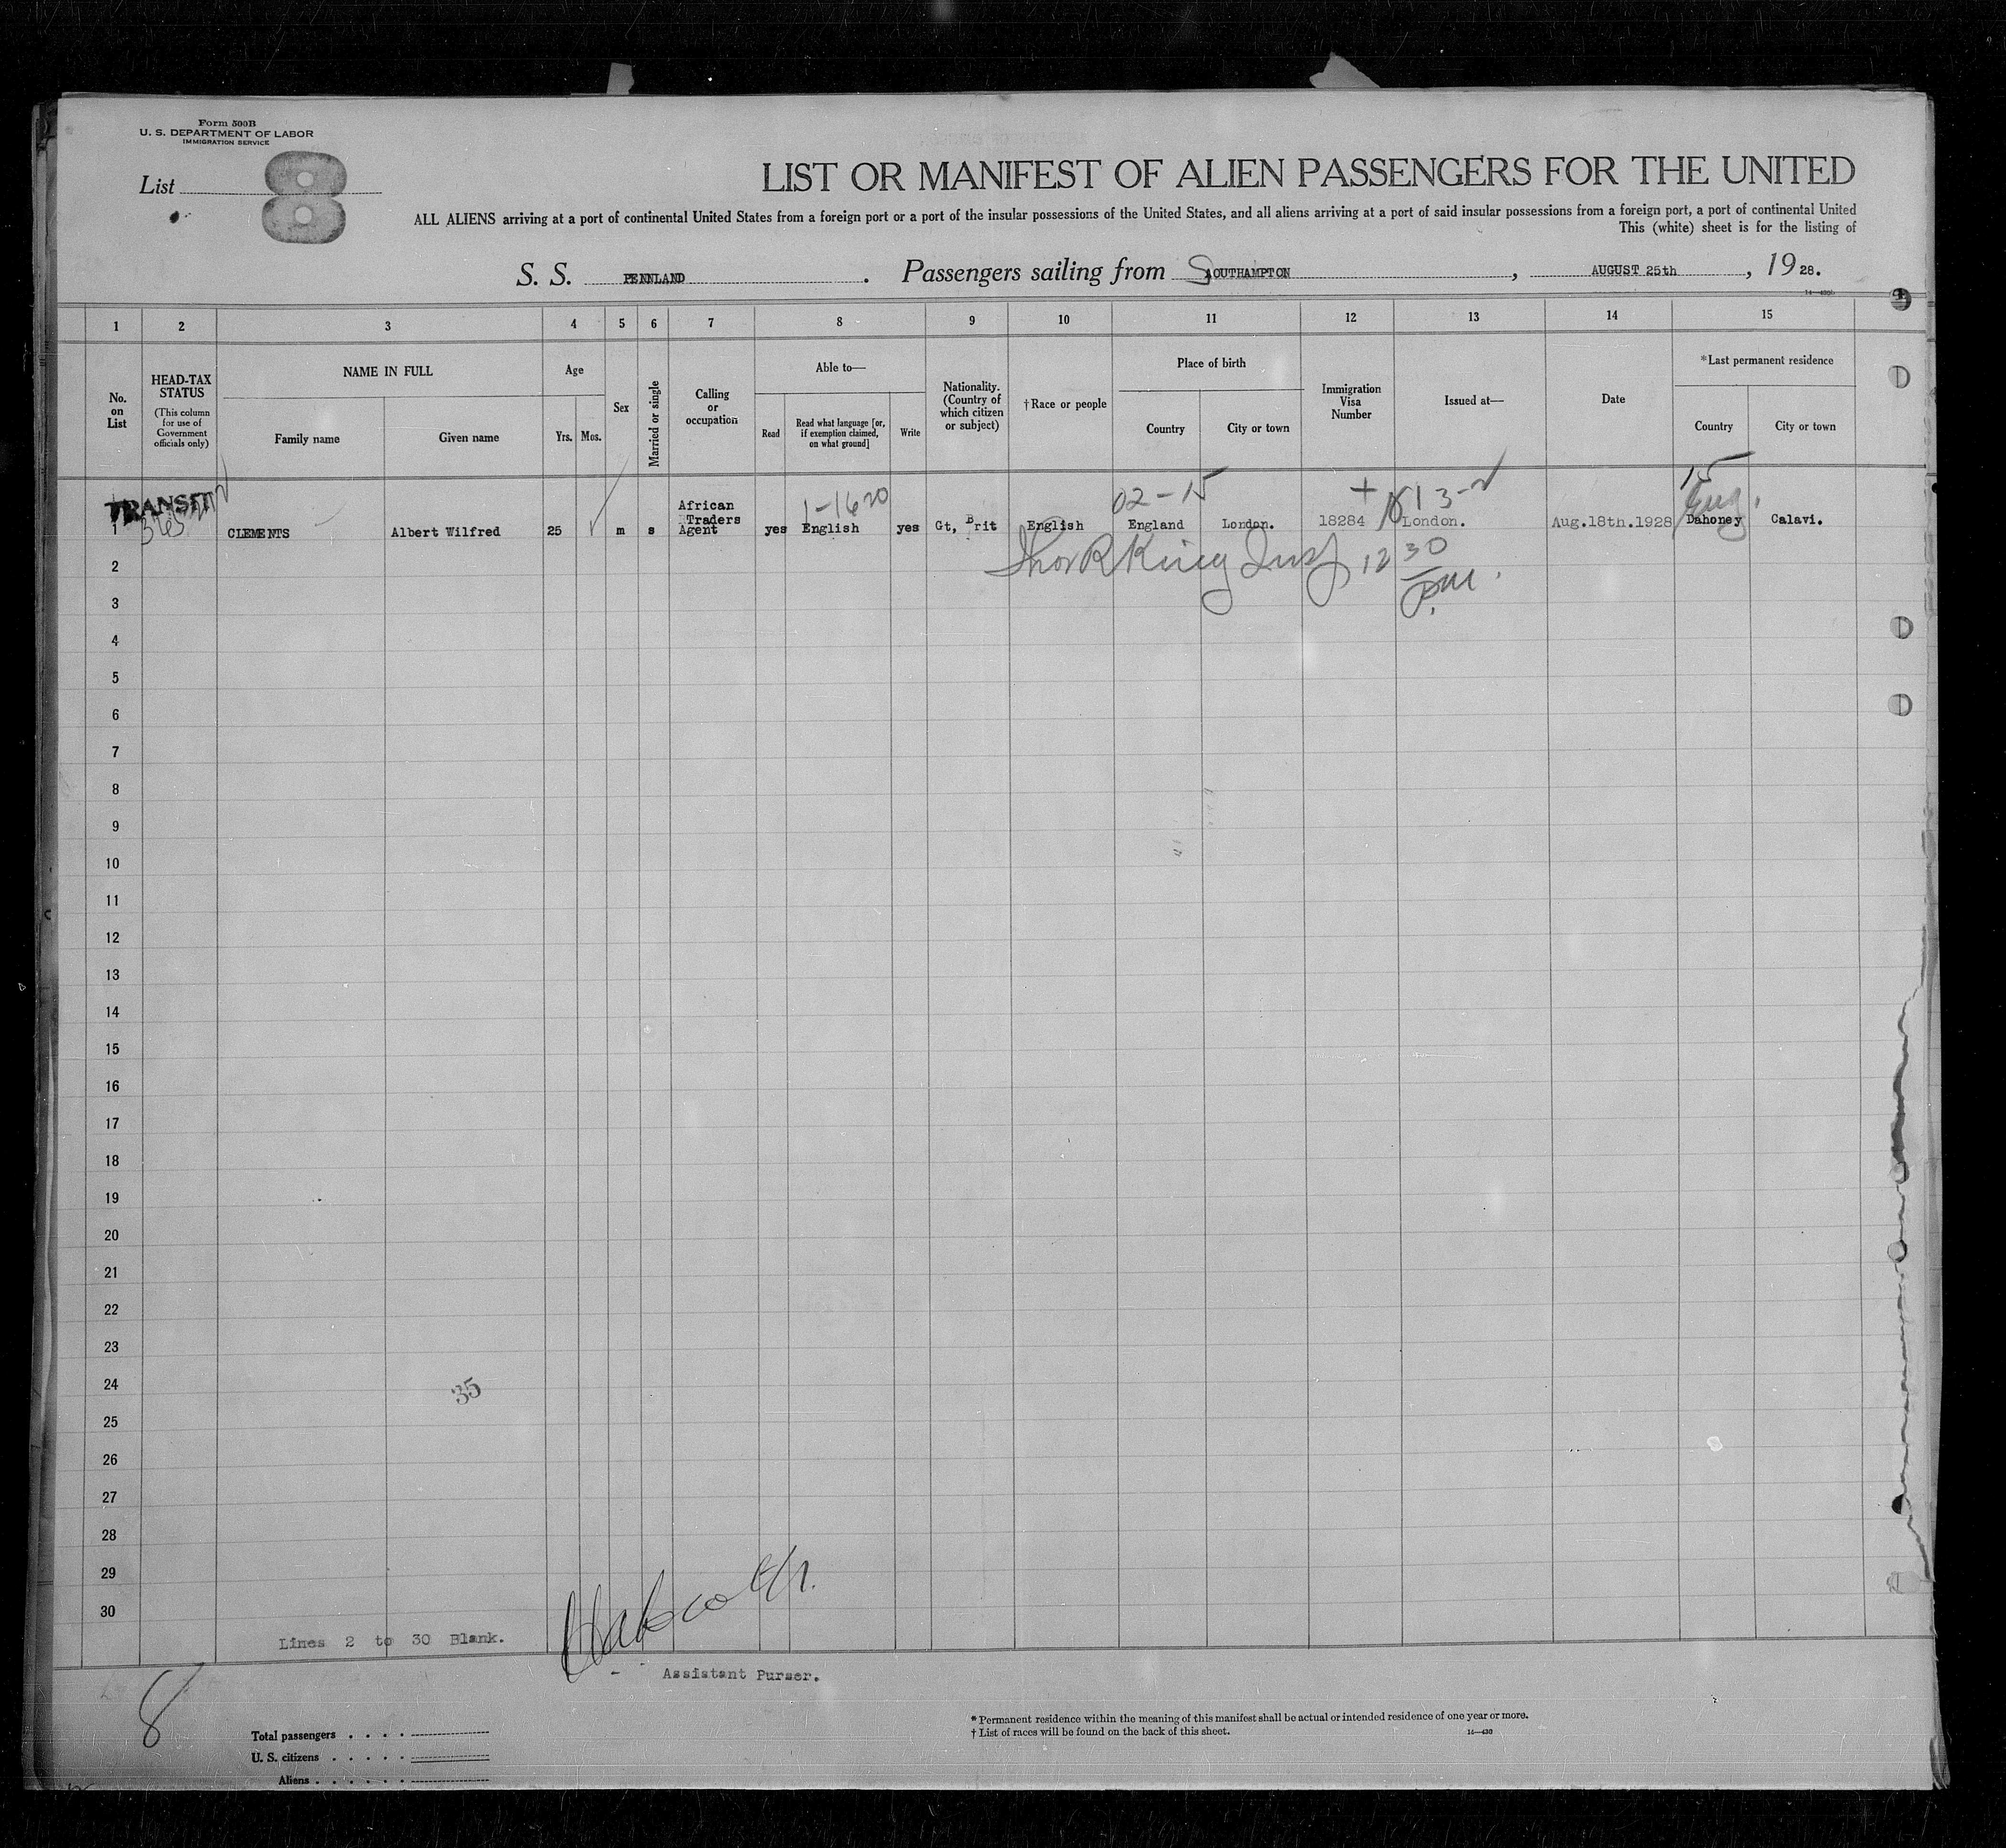 Form 500B
U. S. DEPARTMENT OF LABOR
IMMIGRATION SERVICE
List 8
LIST OR MANIFEST OF ALIEN PASSENGERS FOR THE UNITED
ALL ALIENS arriving at a port of continental United States from a foreign port or a port of the insular possessions of the United States, and all aliens arriving at a port of said insular possessions from a foreign port, a port of continental United
This (white) sheet is for the listing of
S. S. PENNLAND. Passengers sailing from SOUTHAMPTON, AUGUST 25th, 1928.
1 2 3 4 5 6 7 8 9 10 11 12 13 14 15
No. on List
HEAD-TAX STATUS
(This column for use of Government officials only)
NAME IN FULL
Family name
Given name
Age
Yrs. Mos.
Sex
Married or single
Calling or occupation
Able to—
Read
Read what language [or, if exemption claimed, on what ground]
Write
Nationality. (Country of which citizen or subject)
†Race or people
Place of birth
Country
City or town
Immigration Visa Number
Issued at—
Date
*Last permanent residence
Country
City or town
TRANSIT
1-1620
02-15
15
Eng.
1 CLEMENTS Albert Wilfred 25 m s African Traders Agent yes English yes Gt, Brit English England London. 18284 London. Aug.18th.1928 Dahoney Calavi.
King 12 30
pm.
2
3
4
5
6
7
8
9
10
11
12
13
14
15
16
17
18
19
20
21
22
23
24
35
25
26
27
28
29
30
Lines 2 to 30 Blank.
Assistant Purser.
8
Total passengers
U. S. citizens
Aliens
* Permanent residence within the meaning of this manifest shall be actual or intended residence of one year or more.
† List of races will be found on the back of this sheet.
14—430